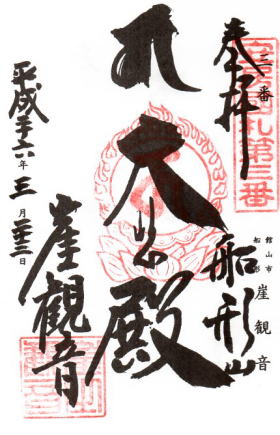 三番
奉拝
札第三番
館山市
船形
崖観音
船形山
大悲殿
崖觀音
平成二十六年三月二十三日